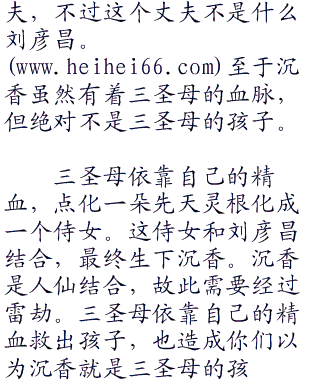 夫，不过这个丈夫不是什么
刘彦昌。
(www.heihei66.com)至于沉
香虽然有着三圣母的血脉，
但绝对不是三圣母的孩子。
三圣母依靠自己的精
血，点化一朵先天灵根化成
一个侍女。这侍女和刘彦昌
结合，最终生下沉香。沉香
是人仙结合，故此需要经过
雷劫。三圣母依靠自己的精
血救出孩子，也造成你们以
为沉香就是三圣母的孩